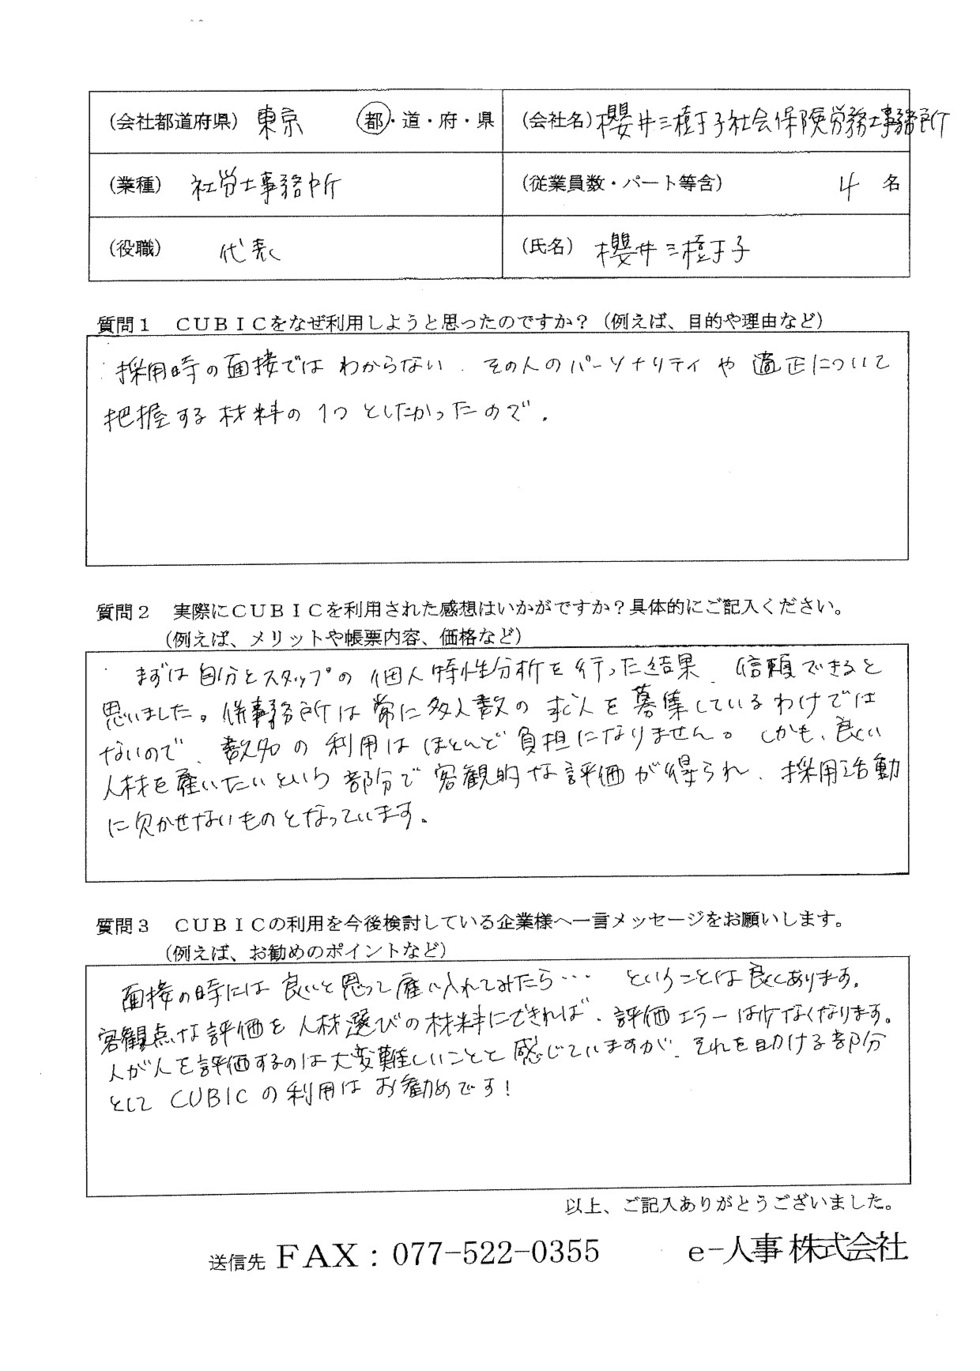 (会社都道府県) 東京 都・道・府・県 (会社名) 櫻井三樹子社会保険労務士事務所
(業種) 社労士事務所 (従業員数・パート等含) 4 名
(役職) 代表 (氏名) 櫻井三樹子
質問1 CUBICをなぜ利用しようと思ったのですか?(例えば、目的や理由など)
採用時の面接ではわからない、その人のパーソナリティや適正について
把握する材料の1つとしたかったので.
質問2 実際にCUBICを利用された感想はいかがですか?具体的にご記入ください。
(例えば、メリットや帳票内容、価格など)
まずは自分とスタッフの個人特性分析を行った結果、信頼できると
思いました。併事務所は常に多人数の求人を募集しているわけでは
ないので、数名の利用はほとんど負担になりません。しかも、良い
人材を雇いたいという部分で客観的な評価が得られ、採用活動
に欠かせないものとなっています。
質問3 CUBICの利用を今後検討している企業様へ一言メッセージをお願いします。
(例えば、お勧めのポイントなど)
面接の時には良いと思って雇い入れてみたら… ということは良くあります。
客観点な評価を人材選びの材料にできれば、評価エラーは少なくなります。
人が人を評価するのは大変難しいことと感じていますが、それを助ける部分
としてCUBICの利用はお勧めです!
以上、ご記入ありがとうございました。
送信先 FAX:077-522-0355 e-人事 株式会社